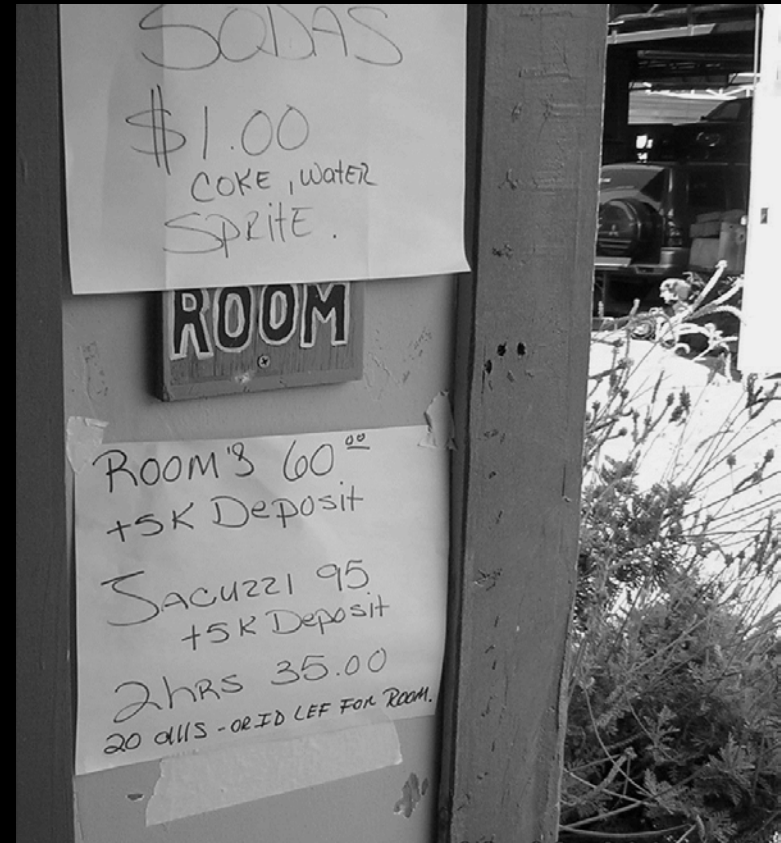 SODAS
$1.00
COKE, WATER
SPRITE.
ROOM
ROOM'S 60 00
+5K Deposit
JACUZZI 95
+5K Deposit
2hRS 35.00
20 dllS - OR ID LEF FOR ROOM.